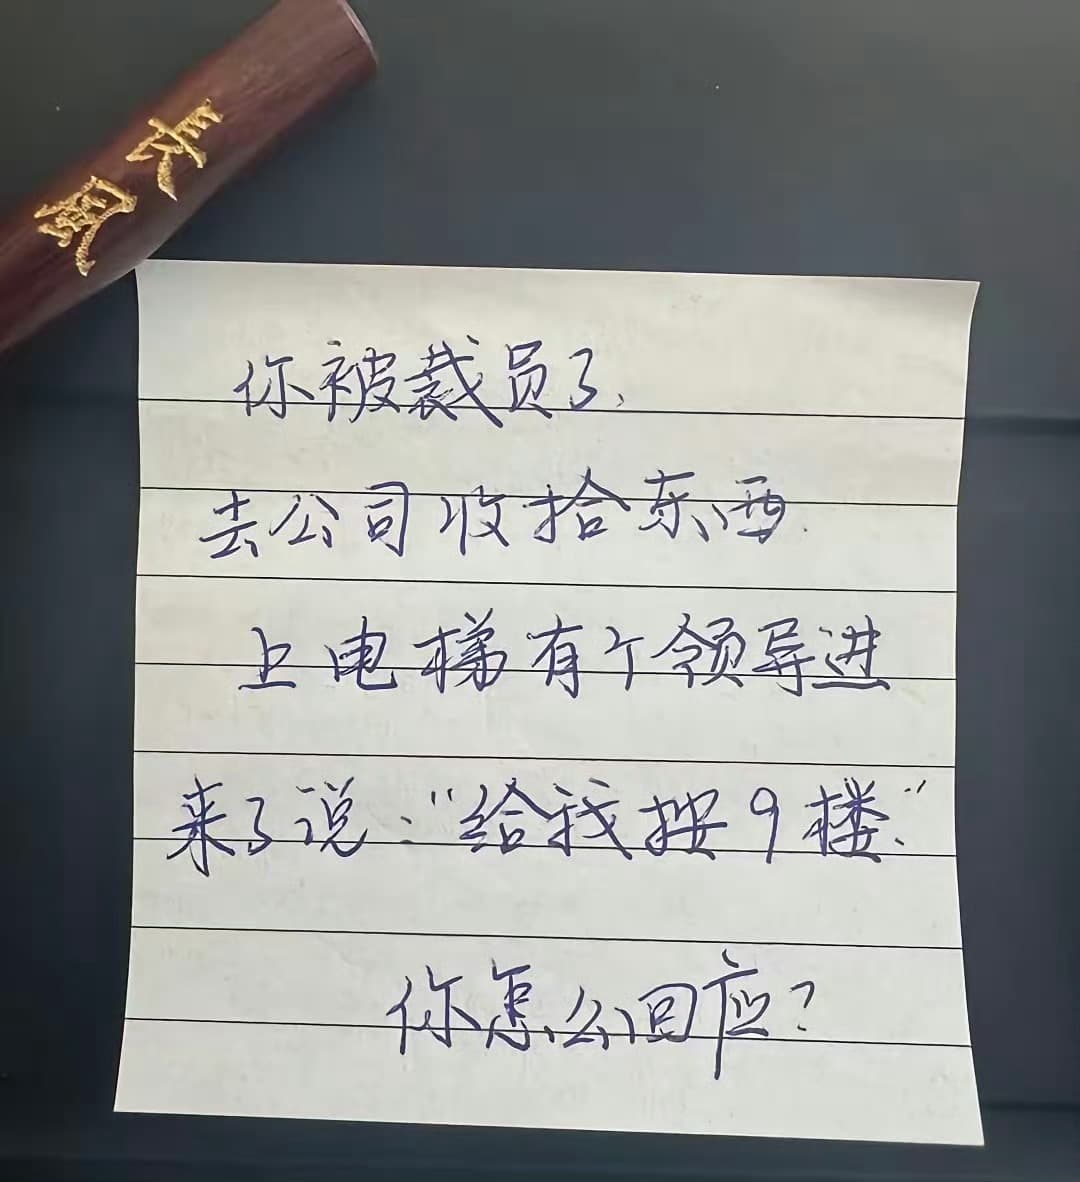 长风
你被裁员了,
去公司收拾东西.
上电梯有个领导进
来了说:“给我按9楼.”
你怎么回应?